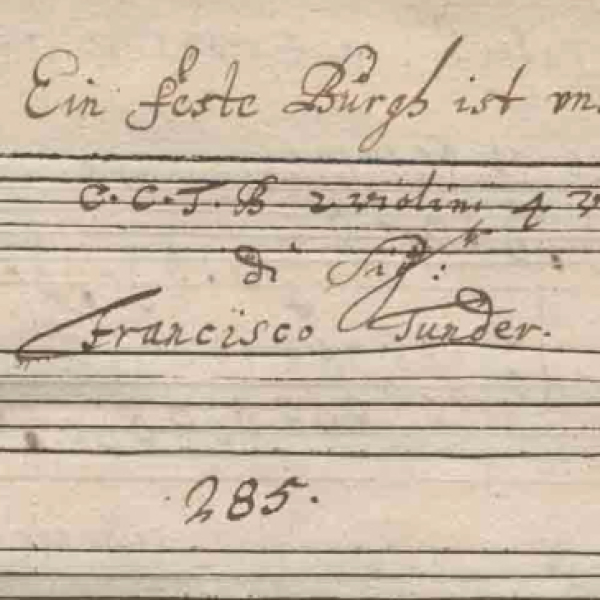 Ein feste Bürgh ist vn
C. C. T. B 2 violini 4 V
di Sig:
Francisco Tunder.
285.